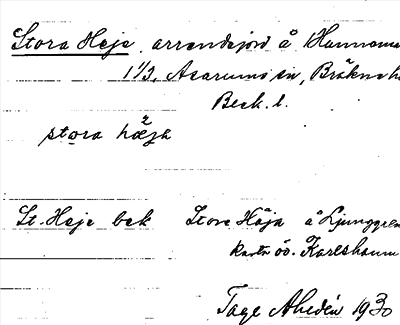 Stora Heje arrendejord å Hunnama
1 1/3, Asarums sn, Bräkne h
Bleck. l.
stora hæjk
St. Heje bek Stora Höja å Ljunggren
karta öv. Karlshamn
Tage Ahldén 1930